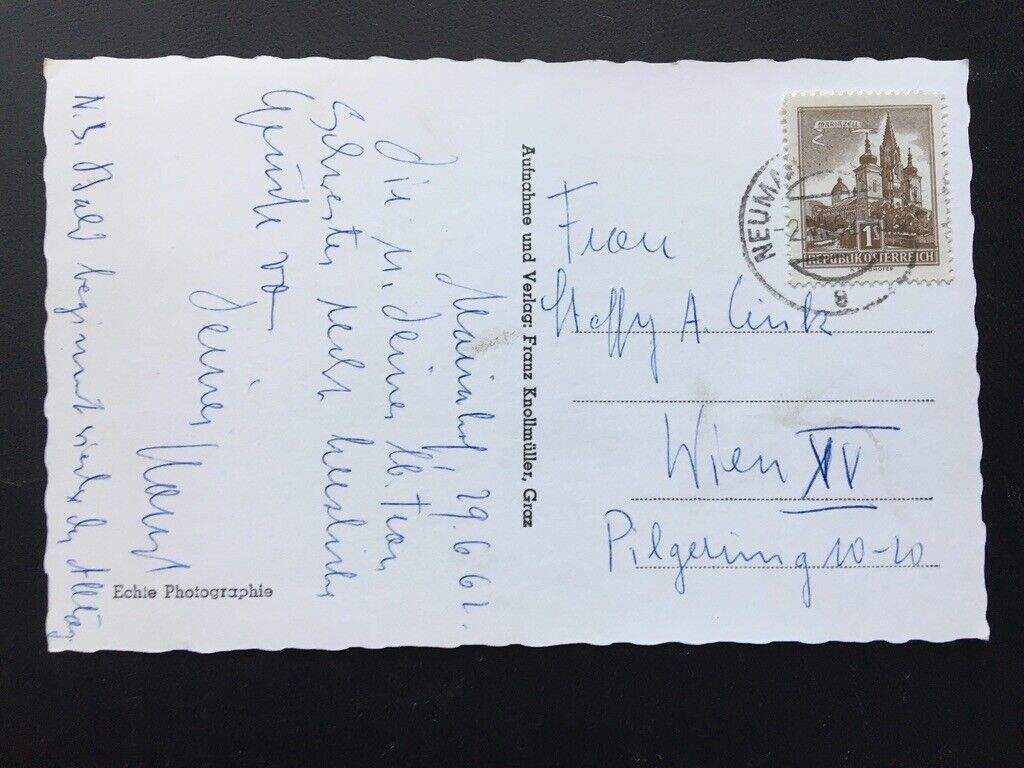 29. 6. 62.
Dir u. Deiner lb. Frau
Schwester recht herzliche
Grüsse von
Deiner
N. S. Bald beginnt wieder der Alltag
Echte Photographie
Aufnahme und Verlag: Franz Knollmüller, Graz
MARIAZELL
1S
REPUBLIK ÖSTERREICH
NEUMA
8
Frau
Steffy A.
Wien XV
Pilgerimg 10-20